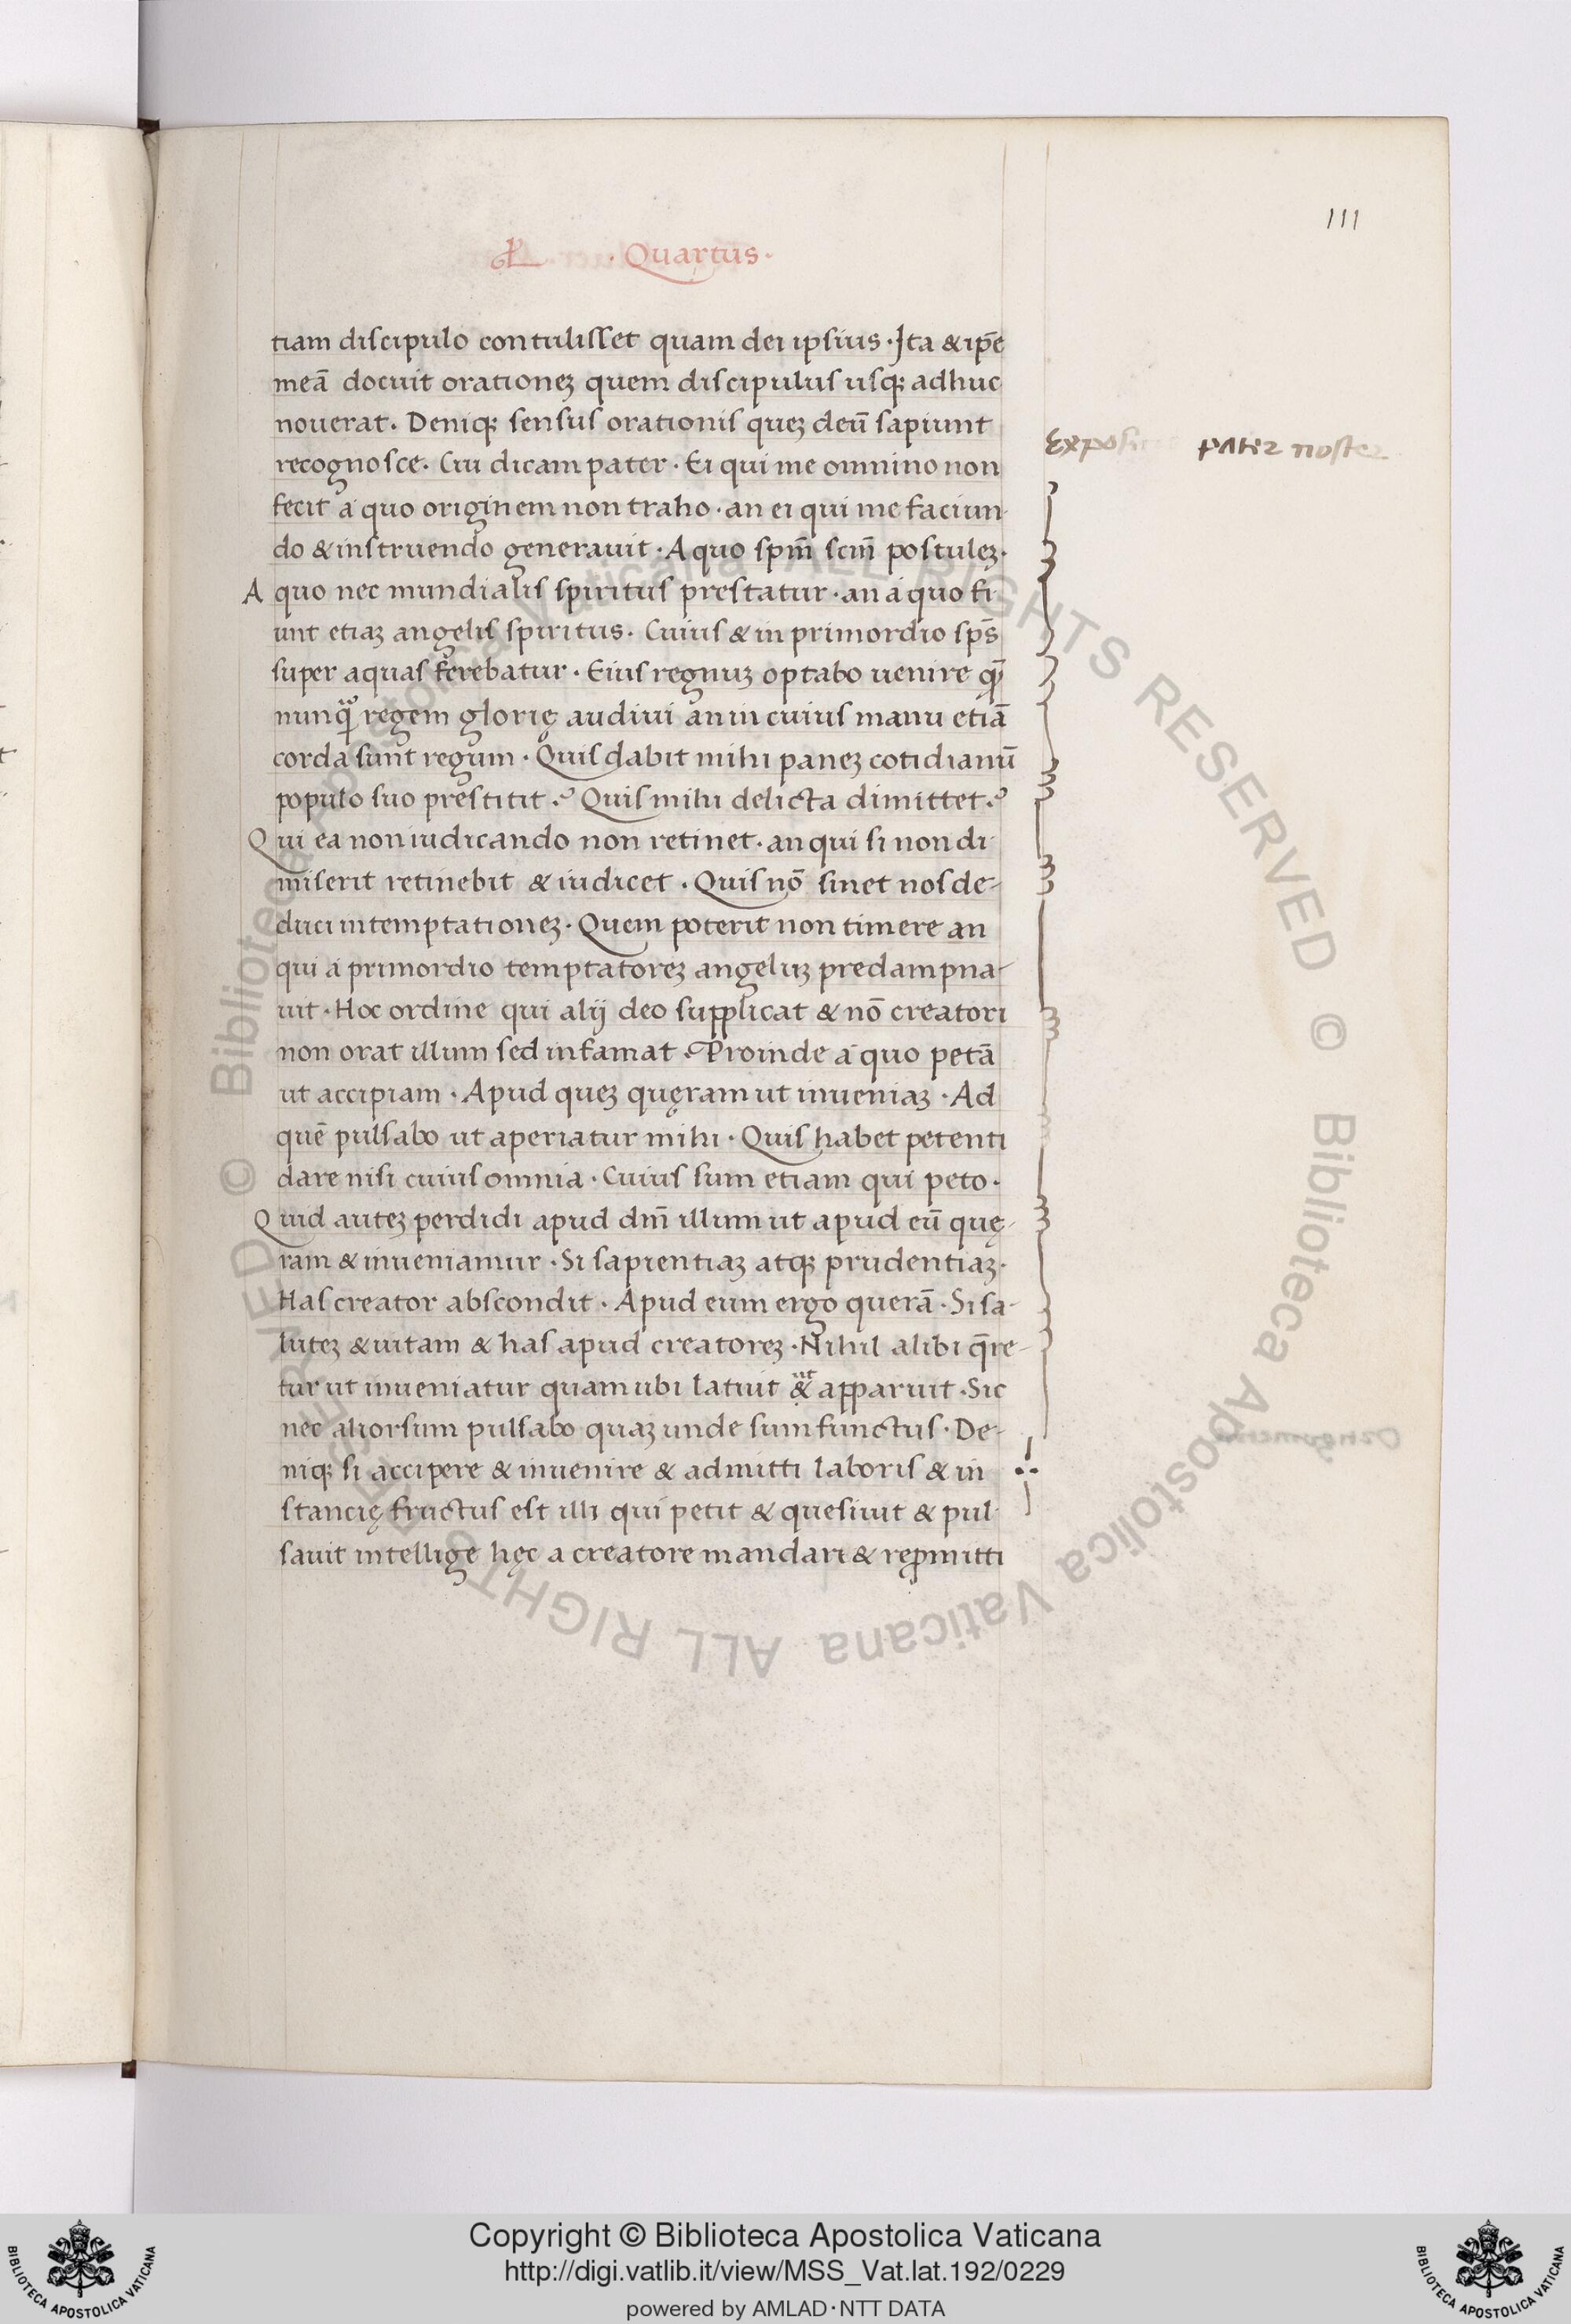 111
· Quartus ·
tiam discipulo contulisset quam dei ipsius · Ita & ip̄e
meā docuit orationeꝫ quem discipulus usqꝫ adhuc
nouerat. Deniqꝫ sensus orationis queꝫ deū sapiunt
recognosce. Cui dicam pater · Ei qui me omnino non
fecit a quo originem non traho · an ei qui me faciun
do & instruendo generauit · A quo spm̄ scm̄ postuleꝫ ·
A quo nec mundialis spiritus prestatur · an a quo fi
unt etiaꝫ angelis spiritus. Cuius & in primordio sp̄s
super aquas ferebatur · Eius regnuꝫ optabo uenire q̄
nunq̄ regem glorię audiui an in cuius manu etiā
corda sunt regum · Quis dabit mihi paneꝫ cotidianū
populo suo prestitit ? Quis mihi delicta dimittet ?
Qui ea non iudicando non retinet · an qui si non di
miserit retinebit & iudicet · Quis nō sinet nos de-
duci in temptationeꝫ · Quem poterit non timere an
qui a primordio temptatoreꝫ angeluꝫ predampna-
uit · Hoc ordine qui alij deo supplicat & nō creatori
non orat illum sed infamat · Proinde a quo petā
ut accipiam · Apud queꝫ quęram ut inueniaꝫ · Ad
quē pulsabo ut aperiatur mihi · Quis habet petenti
dare nisi cuius omnia · Cuius sum etiam qui peto ·
Quid auteꝫ perdidi apud dm̄ illum ut apud eū quę-
ram & inueniamur · Si sapientiaꝫ atqꝫ prudentiaꝫ ·
Has creator abscondit · Apud eum ergo querā · Si sa-
luteꝫ & uitam & has apud creatoreꝫ · Nihil alibi q̄re-
tur ut inueniatur quam ubi latuit & ut apparuit · Sic
nec aliorsum pulsabo quaꝫ unde sum functus · De-
niqꝫ si accipere & inuenire & admitti laboris & in
stancię fructus est illi qui petit & quesiuit & pul
sauit intellige hęc a creatore mandari & repromitti
pater noster
© Biblioteca Apostolica Vaticana ALL RIGHTS RESERVED © Biblioteca Apostolica Vaticana ALL RIGHTS RESERVED
Copyright © Biblioteca Apostolica Vaticana
http://digi.vatlib.it/view/MSS_Vat.lat.192/0229
powered by AMLAD·NTT DATA
BIBLIOTECA APOSTOLICA VATICANA
BIBLIOTECA APOSTOLICA VATICANA